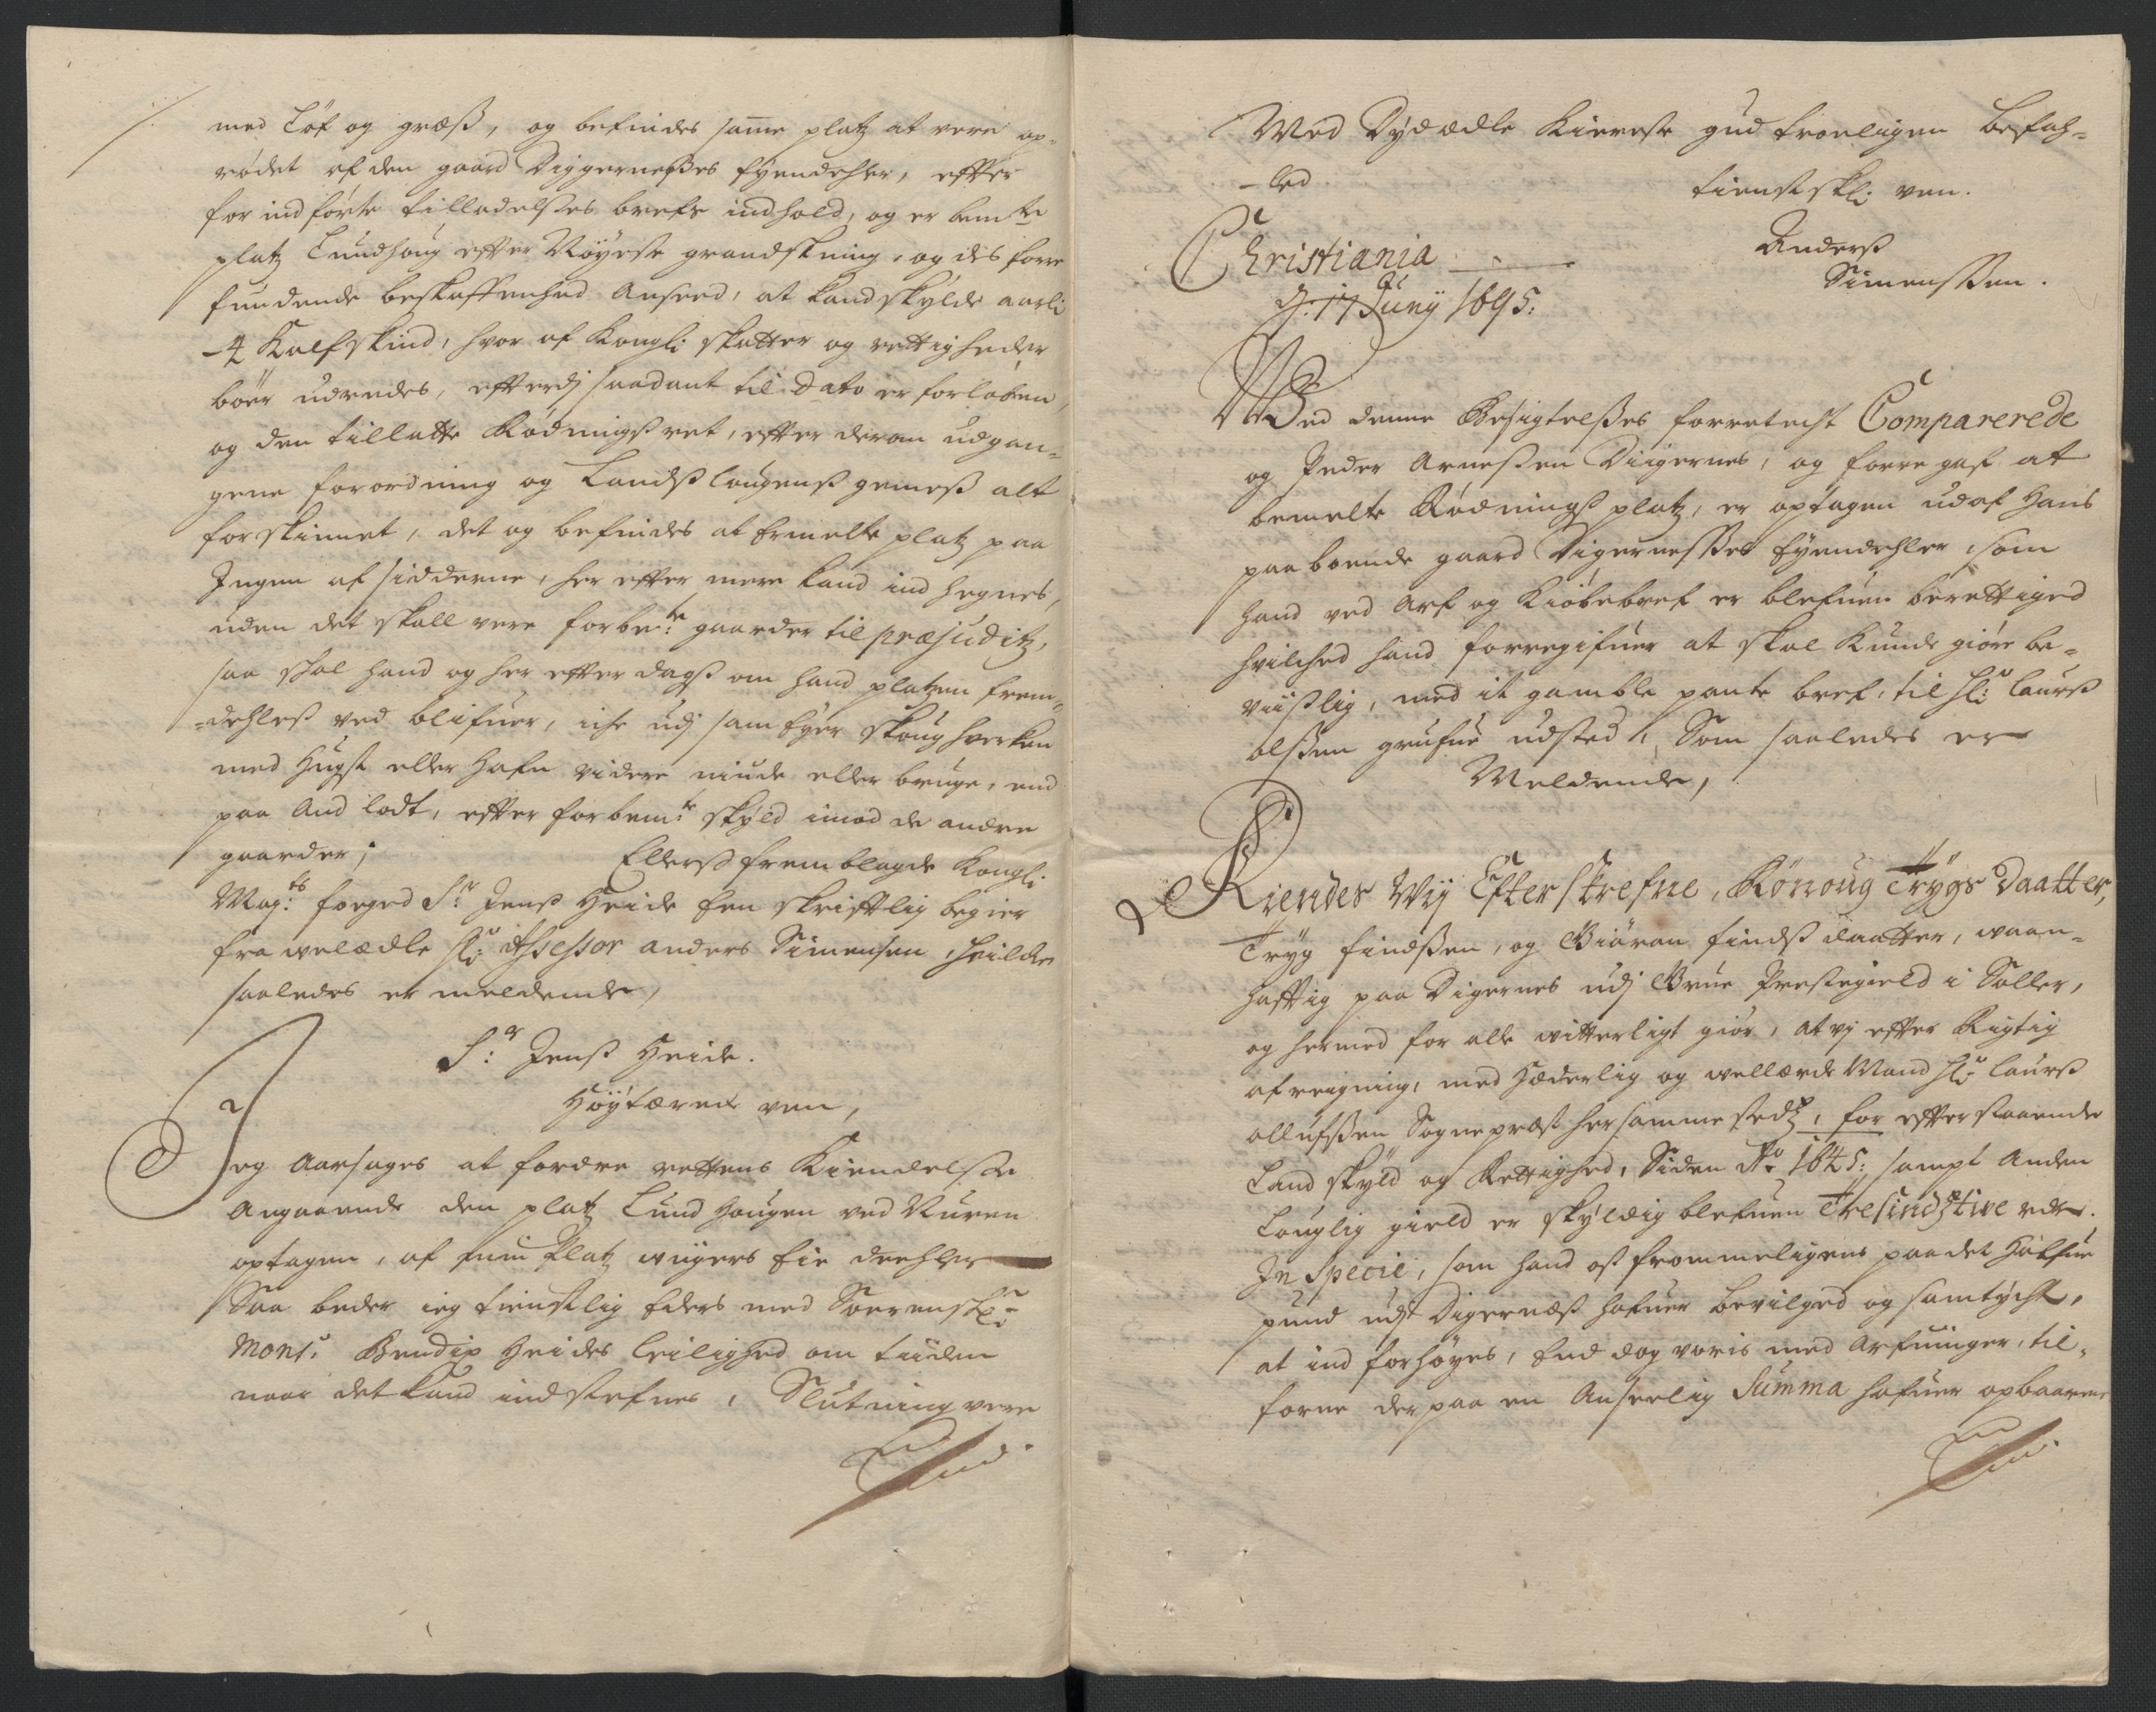 med Löf og græß, og befindes same platz at vere op-
rødet af den gaard Diggerneßes eyendehler, effter
for indførte tilladelßes brefs indhold, og er bemte
platz Lundhoug effter Nöyeste grandskning, og des forre
fundende beskaffenhed Anseed, at Landskylde aarli
4 Kalfskind, hvor af Kongli skatter og rettigheder
bör udredes, effterdj saadant til Dato er forloben,
og den tilladte Rødnings ret, effter derom udgan-
gene forordning og Landßlougens gemeß alt
forskinnet, det og befindes at Ermelte platz paa
Ingen af sidderne, her effter mere kand ind hegnes,
uden det skall vere forbete gaarder til præjuditz,
saa skal hand og her effter dags om hand platzen frem-
-dehleß ved blifuer, iche udj sam Eyer skoug hverken
med Hugst eller Hafn videre niude eller bruge, end
paa And lodt, effter forbemte skyld imod de andre
gaarder; Ellerß fremblagde Kongli
Mayts: foged Sr Jenß Heide Een skrifftlig begier
fra welædle Hr Assessor anders Simensen, hvilken
saaledes er meldende,
Sr: Jenß Heide.
Höytærede ven,
Jeg Aarsages at fordre rettens Kiendelse
Angaaende den platz Lund Hougen ved Nuren
optagen, af min Platz eie deehler
Saa beder ieg tienstlig Eders med Sorenskr:
Monsr. Bendix Heides leilighed om tiiden
naar det kand indstefnes, Slutning vere
End
Med Dydædle Kiereste gud troeligen befah-
-led
tienstskl: ven.
Anderß
Simenssen.
Christiania
d: 17 Juny 1695:
Ved denne Besigtelßes forretecht Comparerede
og Peder Arneßen Diigernes, og forre gaf at
bemelte Rødnings platz, er optagen udaf Hans
paa boende gaard Digernesses Eyendehler, som
hand ved Arf og Kiöbebref er blefuen berettiged
hvilched hand forregifuer at skal Kunde giöre be-
viißlig, med it gamble pante bref, til Hr: Laurß
olßen grufue udsted, Som saaledes er
Meldende,
Kiendes Wij Efterskrefne, Rønoug Trygs Daatter,
Tryg findßen, og Biöran findß daatter, waan-
hafftig paa Digernes udj Grue Prestegield i Soller,
og hermed for alle witterligt giör, at vj effter Rigtig
afreigning, med Hæderlig og wellærde Mand Hr Laurß
olluffßen Sogneprest hersamme stedtz, for effterstaaende
Landskyld og Rettighed, Siden Ao 1645: sampt Anden
Louglig gield er skyldig blefuen Tresindztiuve rdr.
In Specie, som hand oß frommeligens paa det Halfue
pund udj Digernæß hafuer bevilged og samtycht,
at ind forhöyes, End dog voris med Arfuinger, til-
forne der paa en Anseelig Summa hafuer opbaaren
End